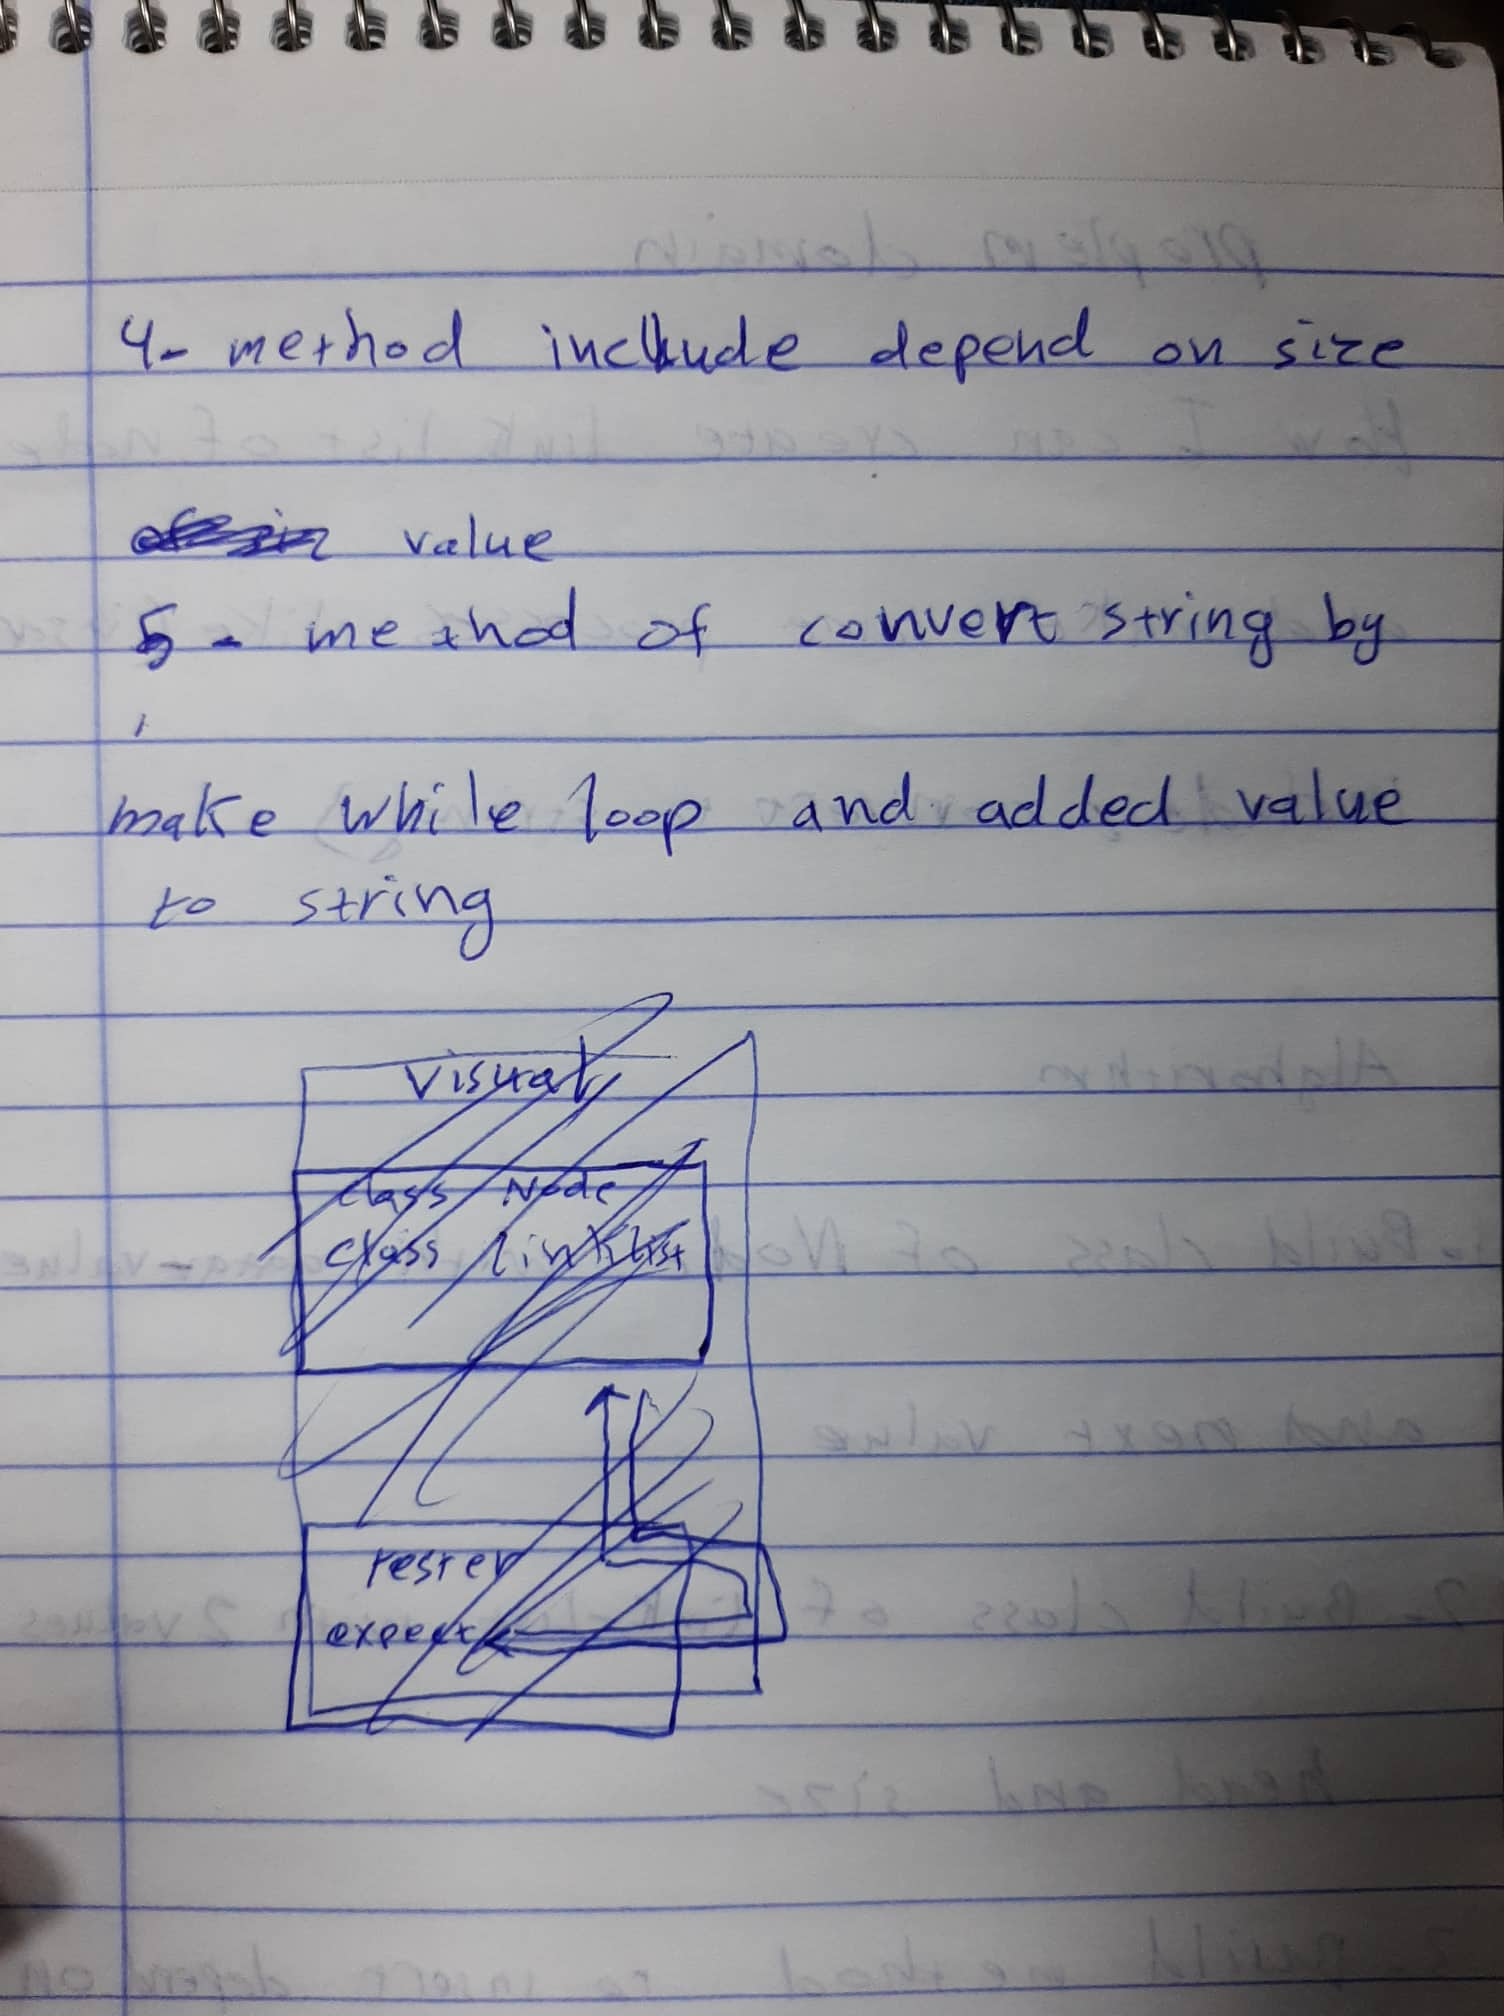 4- method include depend on size
value
5- method of convert string by
make while loop and added value
to string
Visual
class Node
class linklist
tester
expect